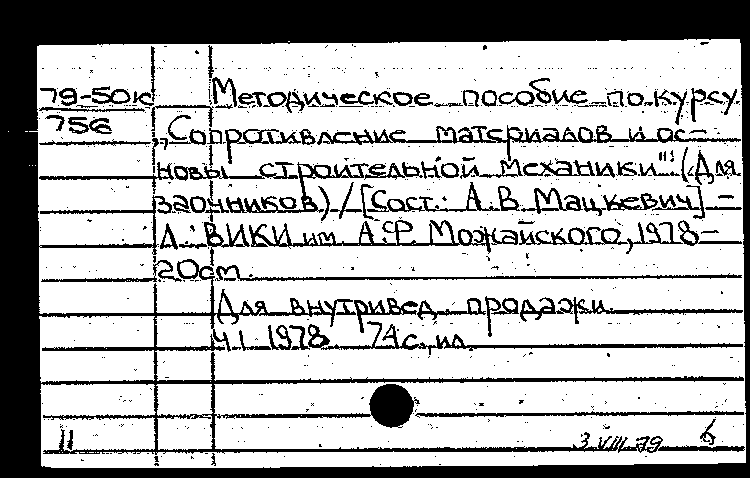 79-50к Методическое пособие по курсу
756 „Сопротивление материалов и ос-
новы строительной механики": (Для
заочников) / [Сост.: А.В. Мацкевич] -
Л.: ВИКИ им. А.Ф. Можайского, 1978-
20см.
Для внутривед. продажи
Ч.1 1978 74с., ил.
11 3 VIII 79